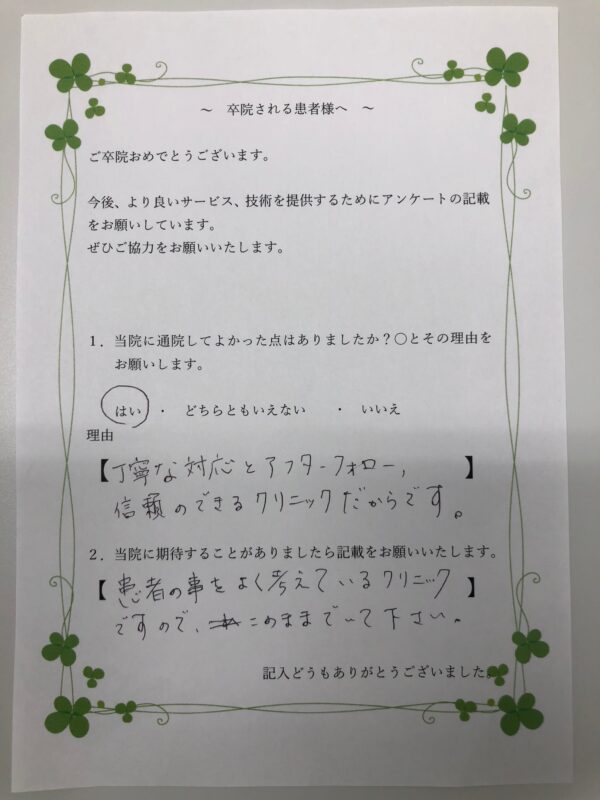 ～ 卒院される患者様へ ～
ご卒院おめでとうございます。
今後、より良いサービス、技術を提供するためにアンケートの記載
をお願いしています。
ぜひご協力をお願いいたします。
１．当院に通院してよかった点はありましたか？〇とその理由を
お願いします。
はい ・ どちらともいえない ・ いいえ
理由
【丁寧な対応とアフターフォロー, 】
信頼のできるクリニックだからです。
２．当院に期待することがありましたら記載をお願いいたします。
【患者の事をよく考えているクリニック】
ですので、このままでいて下さい。
記入どうもありがとうございました。